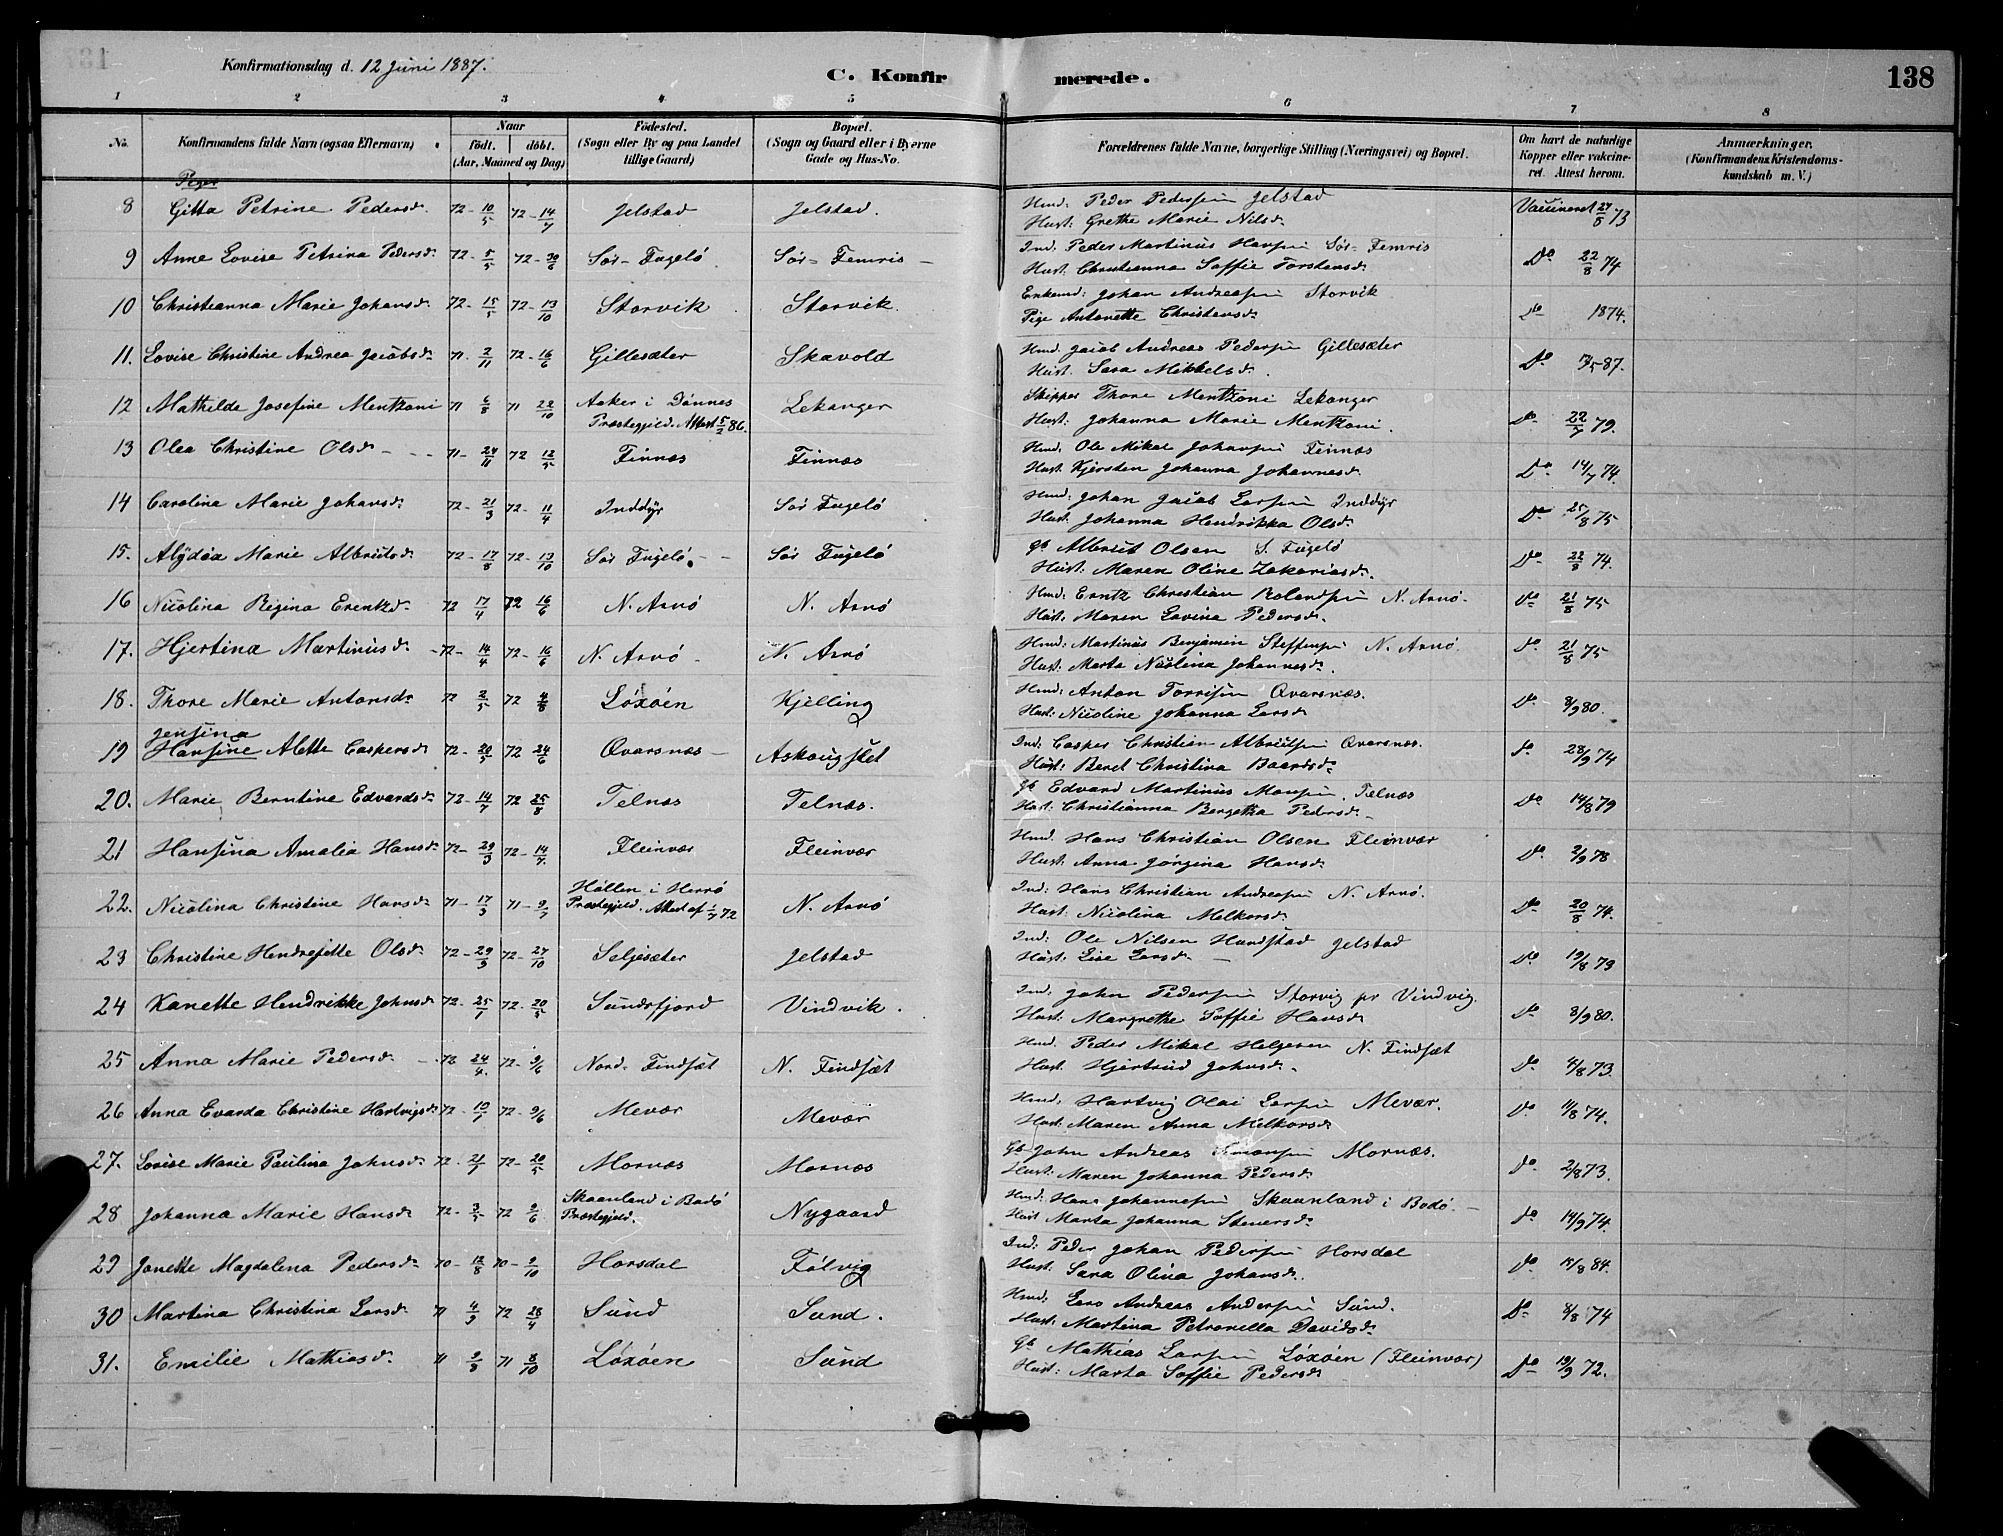 Konfirmationsdag d. 12 Juni 1887.
C. Konfirmerede.
138
1 2 3 4 5 6 7 8
No. Konfirmandens fulde Navn (ogsaa Efternavn) Naar födt. döbt. (Aar, Maaned og Dag) Födested. (Sogn eller By og paa Landet tillige Gaard) Bopæl. (Sogn og Gaard eller i Byerne Gade og Hus-No. Forældrenes fulde Navne, borgerlige Stilling (Næringsvei) og Bopæl. Om havt de naturlige Kopper eller vakcineret. Attest herom. Anmærkninger. (Konfirmandens Kristendomskundskab m. V.)
Piger
8 Gitta Petrine Pedersd. 72 - 10/5 72 - 14/7 Jelstad Jelstad. Hmd: Peder Pedersen Jelstad Vaccineret 27/8 73
Hust: Grethe Marie Nilsd.
9 Anne Lovise Petrina Pedersd. 72 - 5/5 72 - 30/6 Sör-Fugelö Sör-Femris Ind: Peder Martinus Hansen Sör-Femris Do 22/8 74
Hust: Christianna Soffie Torstensd.
10 Christianna Marie Johansd. 72 - 15/5 72 - 13/10 Storvik Storvik. Enkemd: Johan Andreasen Storvik do 1874.
Pige Antonette Christensd.
11. Lovise Christine Andrea Jacobsd. 71 - 2/11 72 - 16/6 Gillesæter Skavold Hmd. Jacob Andreas Pedersen Gillesæter Do 87.
Hust. Sara Mikkelsd.
12 Mathilde Josefine Mentzoni 71 6/8 71 22/10 Aaker i Dönnes Præstegjeld. Attest 5/2 86. Lekanger Skipper Thore Mentzoni Lekanger Do 22/7 79.
Hust: Johanna Marie Mentzoni.
13 Olea Christine Olsd. 71 - 24/11 72 12/5 Finnæs Finnæs Hmd. Ole Mikal Johansen Finnæs Do 14/7 74.
Hust: Kjersten Johanna Johannesd.
14 Carolina Marie Johansd. 72 - 21/3 72 - 11/4 Inddyr Sör Fugelö Hmd: Johan Jacob Larsen Inddyr Do 25/8 75
Hust. Johanna Hendrikka Olsd.
15. Alydia Marie Albrictsd. 72 - 17/8 72 - 13/10 Sör Fugelö Sör Fugelö Gb Albrict Olsen S. Fugelö Do 22/8 74.
Hust: Maren Oline Zakariasd.
16 Nicolina Regina Erentzd. 72 17/4 72 16/6 N. Arnö N. Arnö Hmd: Erntz Christian Rolandsen N. Arnö. Do 21/8 75
Hust: Maren Lavina Pedersd.
17. Hjertina Martinusd. 72 - 14/4 72 - 16/6 N. Arnö N. Arnö Hmd: Martinus Benjamin Steffensen N. Arnö. Do 21/8 75
Hust. Marta Nicolina Johannesd.
18. Thore Marie Antonsd. 72 2/5 72 4/8 Löxöen Kjelling Hmd: Anton Torrisen Qvarsnæs. Do 8/9 80.
Hust: Nicoline Johanna Larsd
Jensina
19 Hansine Alette Caspersd 72 - 20/5 72 24/6 Qvarsnæs Askougstet Ind: Casper Christian Albrictsen Qvarsnæs. do 28/9 74
Hust: Beret Christina Baardsd.
20. Marie Berntine Edvardsd. 72 - 14/7 72 25/8 Telnæs Telnæs. Gb Edvard Martinus Monsen Telnæs Do 14/8 79
Hust: Christianna Bergetha Pedersd.
21 Hansina Amalia Hansd. 72 - 29/3 72 - 14/7. Fleinvær Fleinvær Hmd. Hans Christian Olsen Fleinvær Do 2/9 78
Hust: Anna Jörgina Hansd.
22. Nicolina Christine Hansd. 71 - 17/3 71 - 9/7 Höllen i Herrö Præstegjeld. Attest af 1/7 72 N. Arnö Ind: Hans Christian Andreasen N. Arnö. Do 20/8 74.
Hust: Nicolina Melkersd.
23 Christine Hendrejette Olsd. 72 - 29/3 72 - 27/10 Seljesæter Jelstad Ind: Ole Nilsen Hundstad Jelstad Do 19/8 79
Hust: Lise Larsd.
24 Kanette Hendrikke Johnsd 72 - 25/1 72 - 20/5 Sundsfjord Vindvik. Ind. John Pedersen Storvig pr Vindvig Do 8/9 80.
Hust: Margrethe Soffie Hansd
25 Anna Marie Pedersd. 72 24/4. 72 - 9/6 Nord. Findset N. Findset Hmd. Peder Mikal Helgesen N. Findset Do 4/8 73.
Hust. Hjertrud Johnsd.
26 Anna Evarda Christine Hartvigsd. 72 - 10/1 72 - 9/6 Mevær Mevær Hmd. Hartvig Olai Larsen Mevær. Do 14/8 74.
Hust: Maren Anna Melkorsd
27. Lovise Marie Paulina Johnsd. 72 - 21/1 72 - 20/5 Mornæs Mornæs Gb John Andreas Simonsen Mornæs. Do 2/8 73.
Hust. Maren Johanna Pedersd.
28 Johanna Marie Hansd. 72 - 3/5 72 9/6 Skaanland i Bodö Præstegjeld. Nygaard Hmd: Hans Johannesen Skaanland i Bodö. do 14/9 74.
Hust Marta Johanna Steuersd.
29 Janette Magdalena Pedersd. 70 - 12/8 70 - 9/10 Horsdal Fölvig Ind: Peder Johan Pedersen Horsdal Do 14/8 84.
Hust. Sara Olina Johansd.
30 Martina Christina Larsd. 71 4/9 72 28/4 Sund Sund. Hmd. Lars Andreas Andersen Sund. Do 8/8 74
Hust: Martina Petronella Davidsd.
31. Emilie Mathiasd. 71 9/9 71 8/10 Löxöen Sund Gb Mathias Larsen Löxöen (Fleinvær) Do 19/9 72.
Hust: Marta Soffie Pedersd